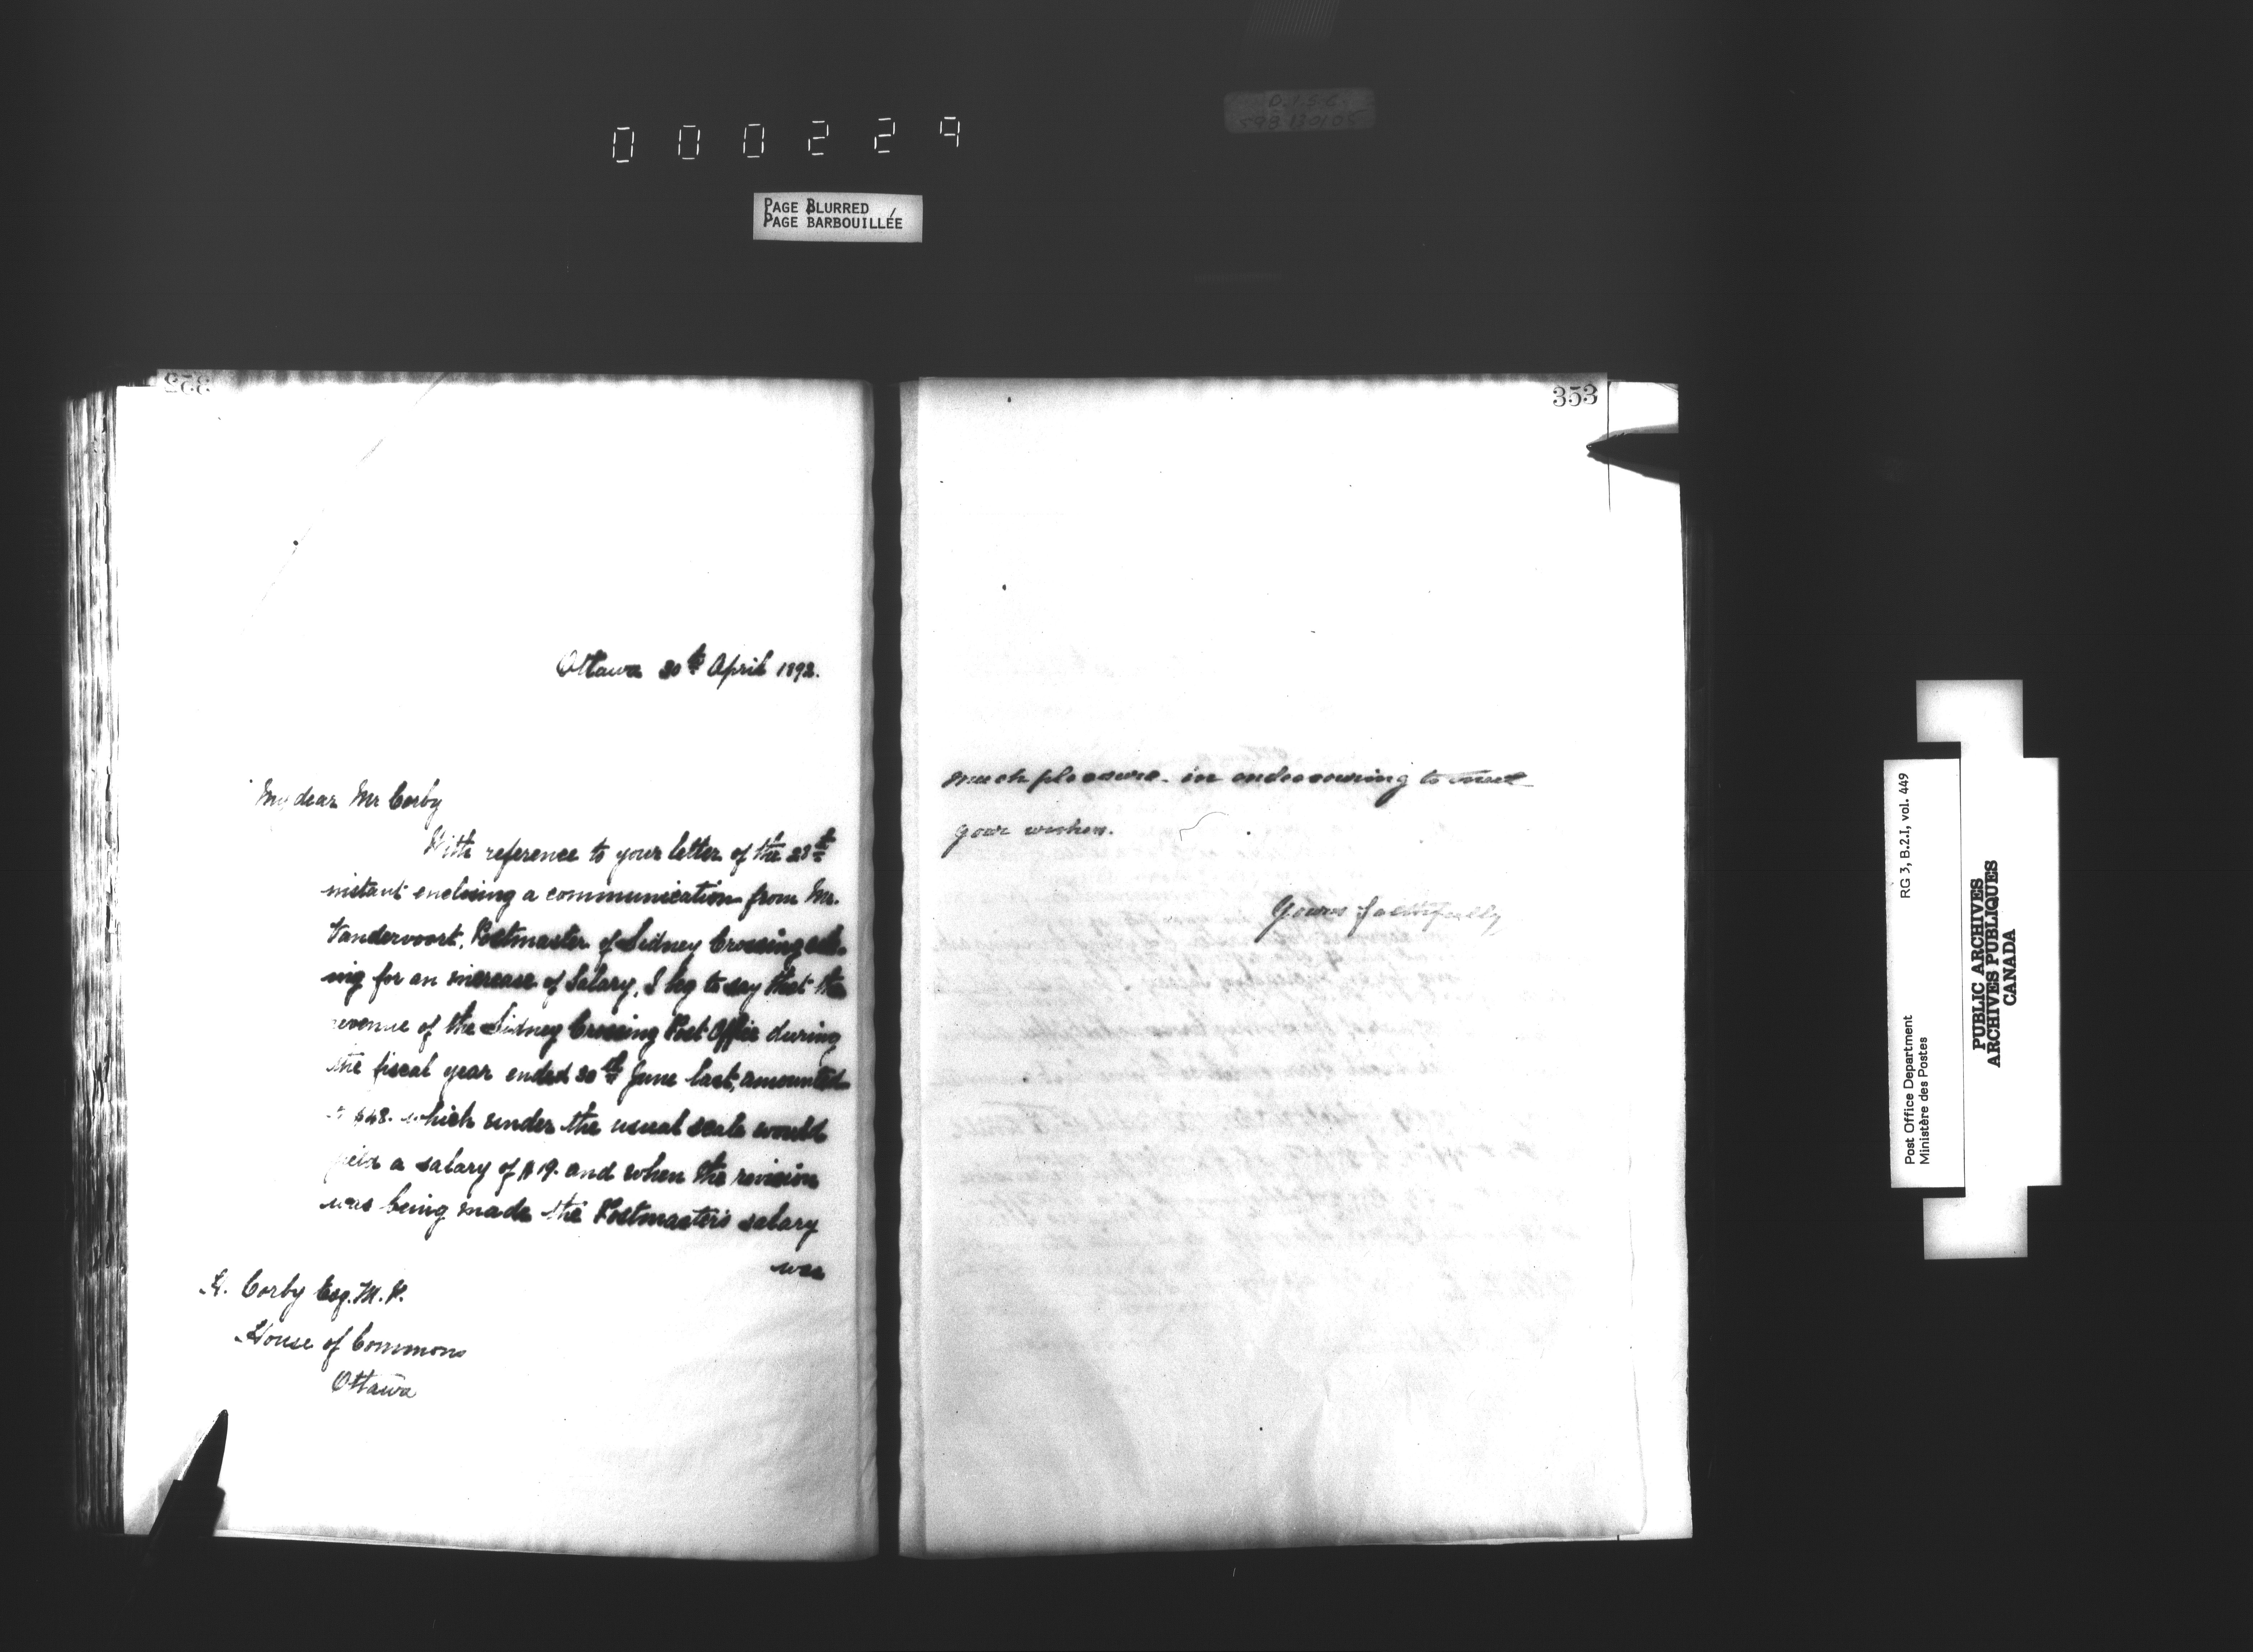 000229
PAGE BLURRED
PAGE BARBOUILLÉE
353
Ottawa 30th April 1892.
My dear Mr Corby
With reference to your letter of the 28th
instant enclosing a communication from Mr.
Vandervoort, Postmaster of Sidney Crossing ask-
ing for an increase of Salary, I beg to say that the
revenue of the Sidney Crossing Post Office during
the fiscal year ended 30th June last, amounted
to $48. which under the usual scale would
yield a salary of $19. and when the revision
was being made the Postmaster's salary
was
H. Corby Esq. M.P.
House of Commons
Ottawa
353
much pleasure in endeavouring to meet
your wishes.
Yours faithfully
Post Office Department
Ministère des Postes
RG 3, B.2.I, vol. 449
PUBLIC ARCHIVES
ARCHIVES PUBLIQUES
CANADA